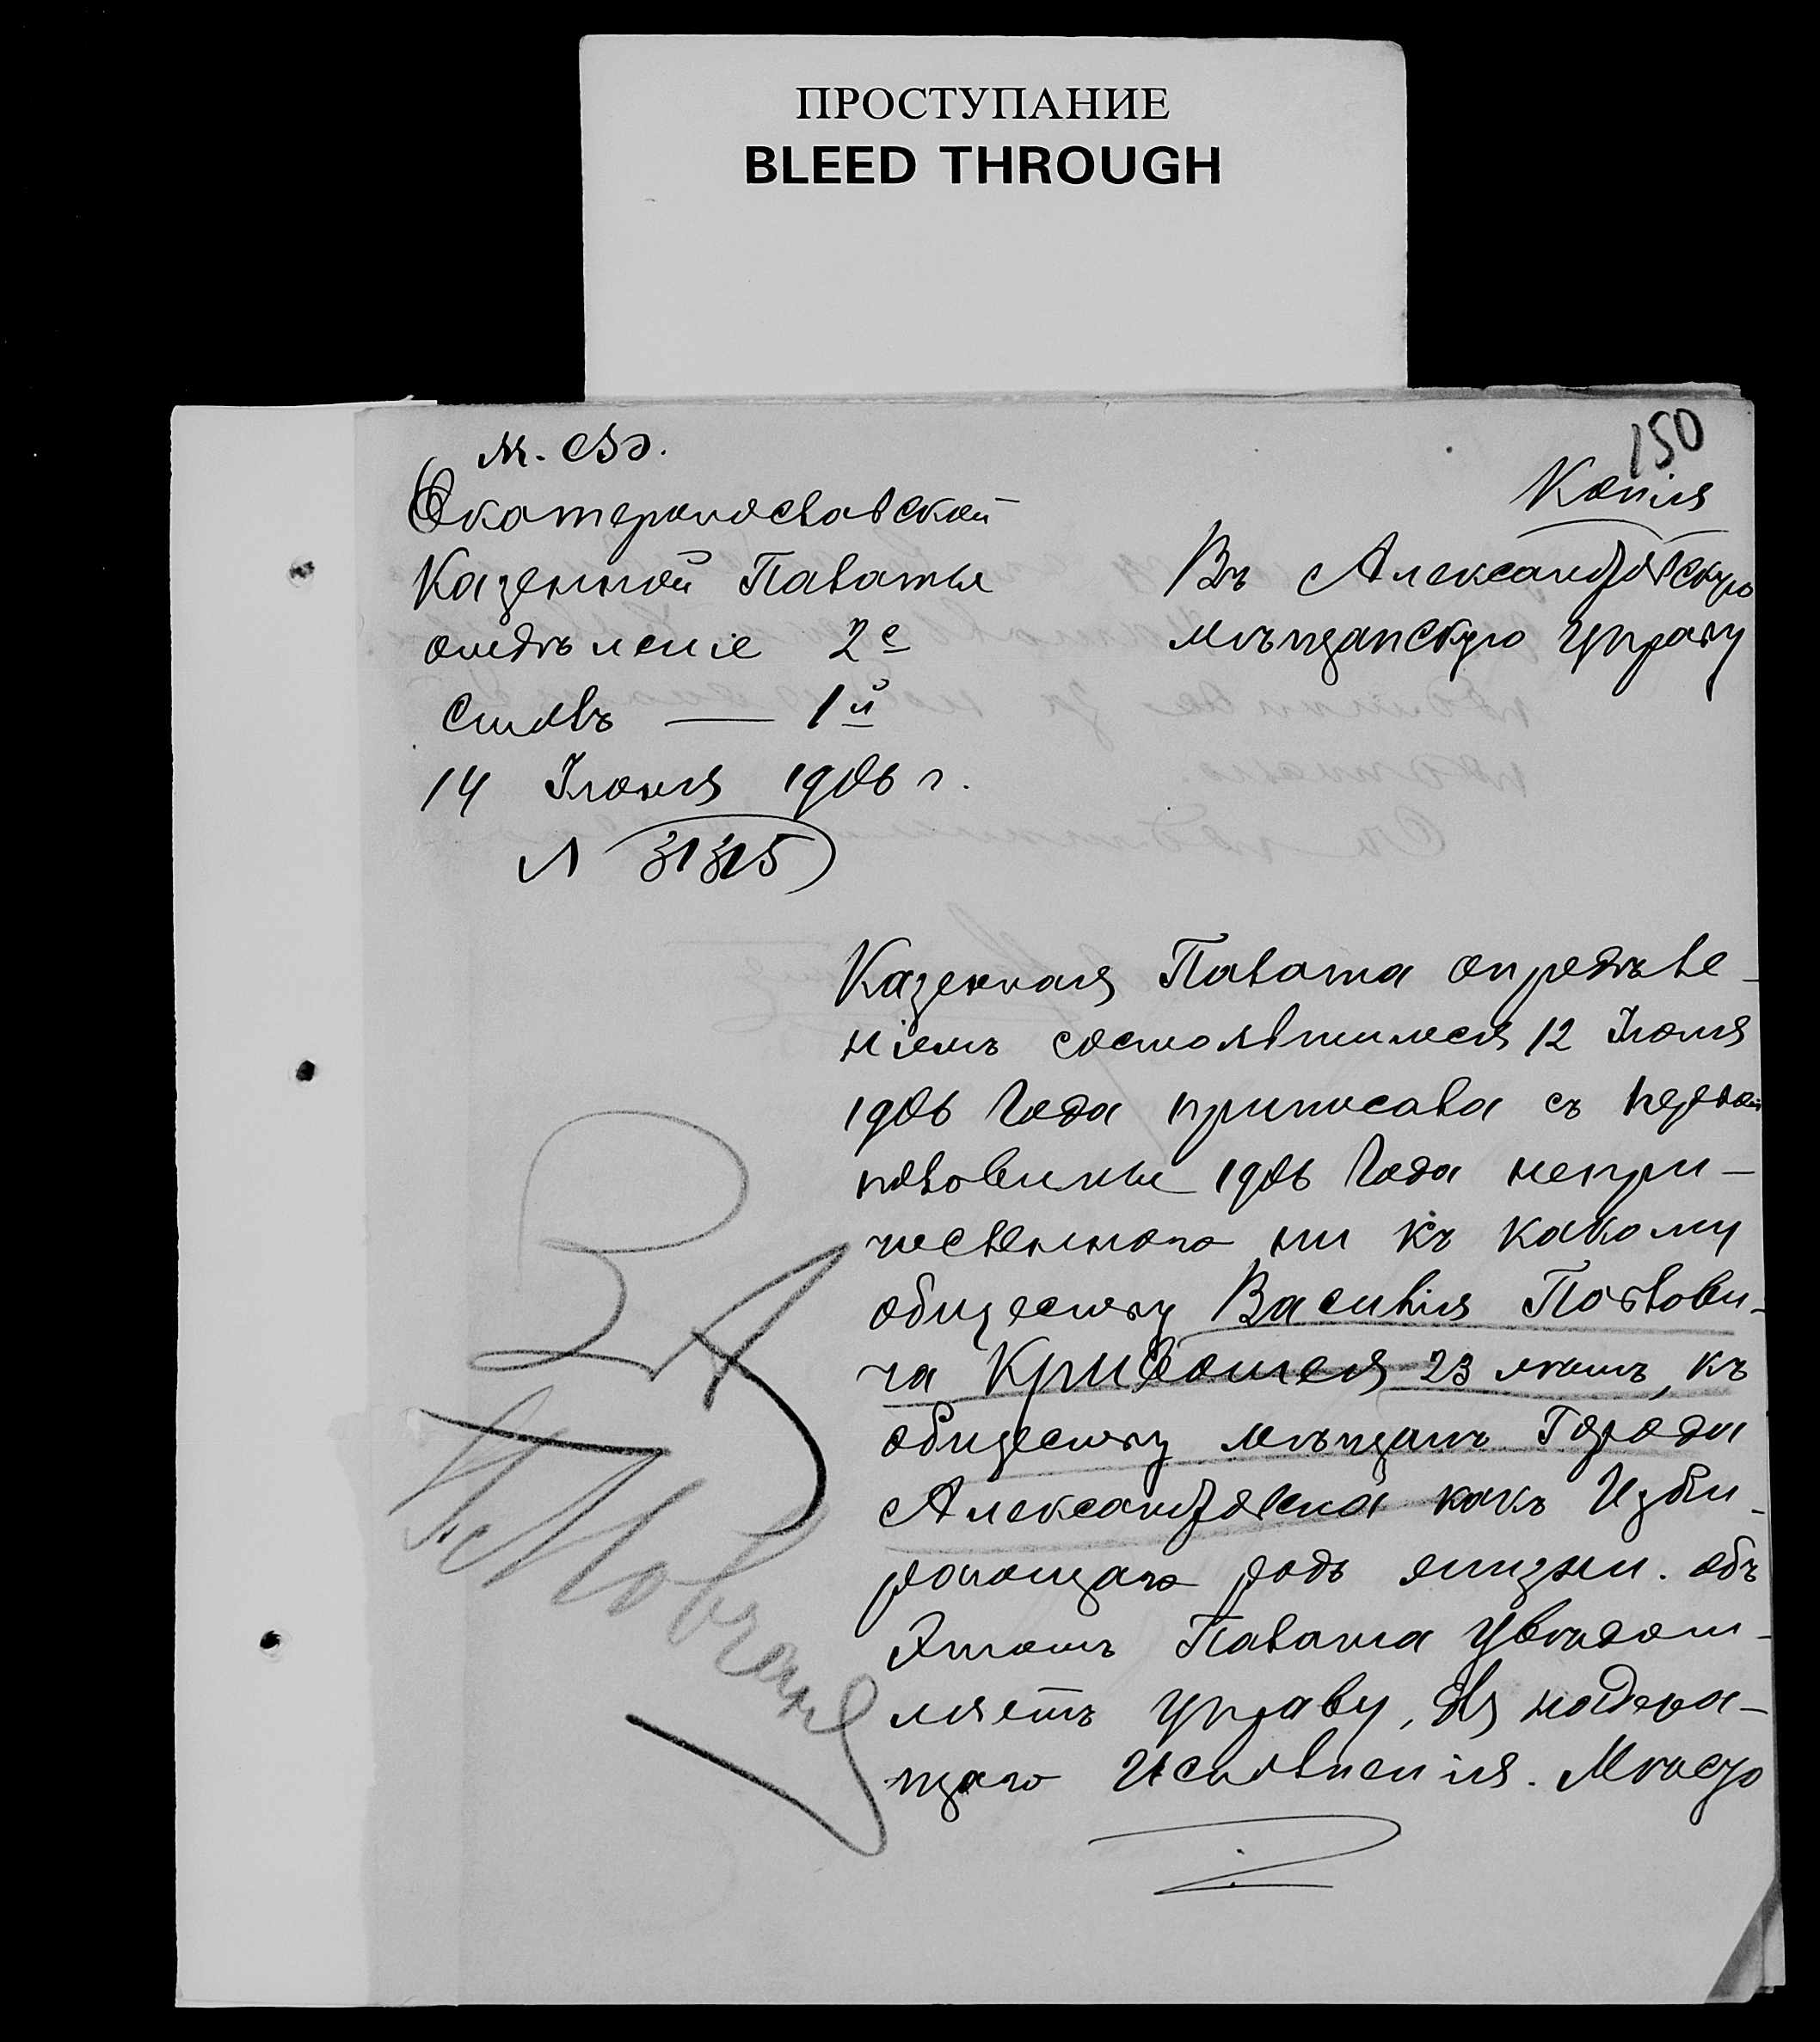 ПРОСТУПАНИЕ
BLEED THROUGH
150
Копія
М. Ф.
Екатеринославской
Казенной Палаты
отдѣленіе 2е
столъ — 1й
14 Іюня 1906 г.
№ 31315
Въ Александровскую
мѣщанскую Управу
Казенная Палата опредѣле-
ніемъ состоявшимся 12 Іюня
1906 Года приписала съ первой
половины 1906 Года непри-
численнаго ни къ какому
обществу Василія Павлови-
ча Кривошея 23 лѣтъ, къ
обществу мѣщанъ Города
Александровска какъ Изби-
рающаго родъ жизни. объ
Этомъ Палата Увѣдом-
ляетъ Управу, для надлежа-
щаго Исполненія.